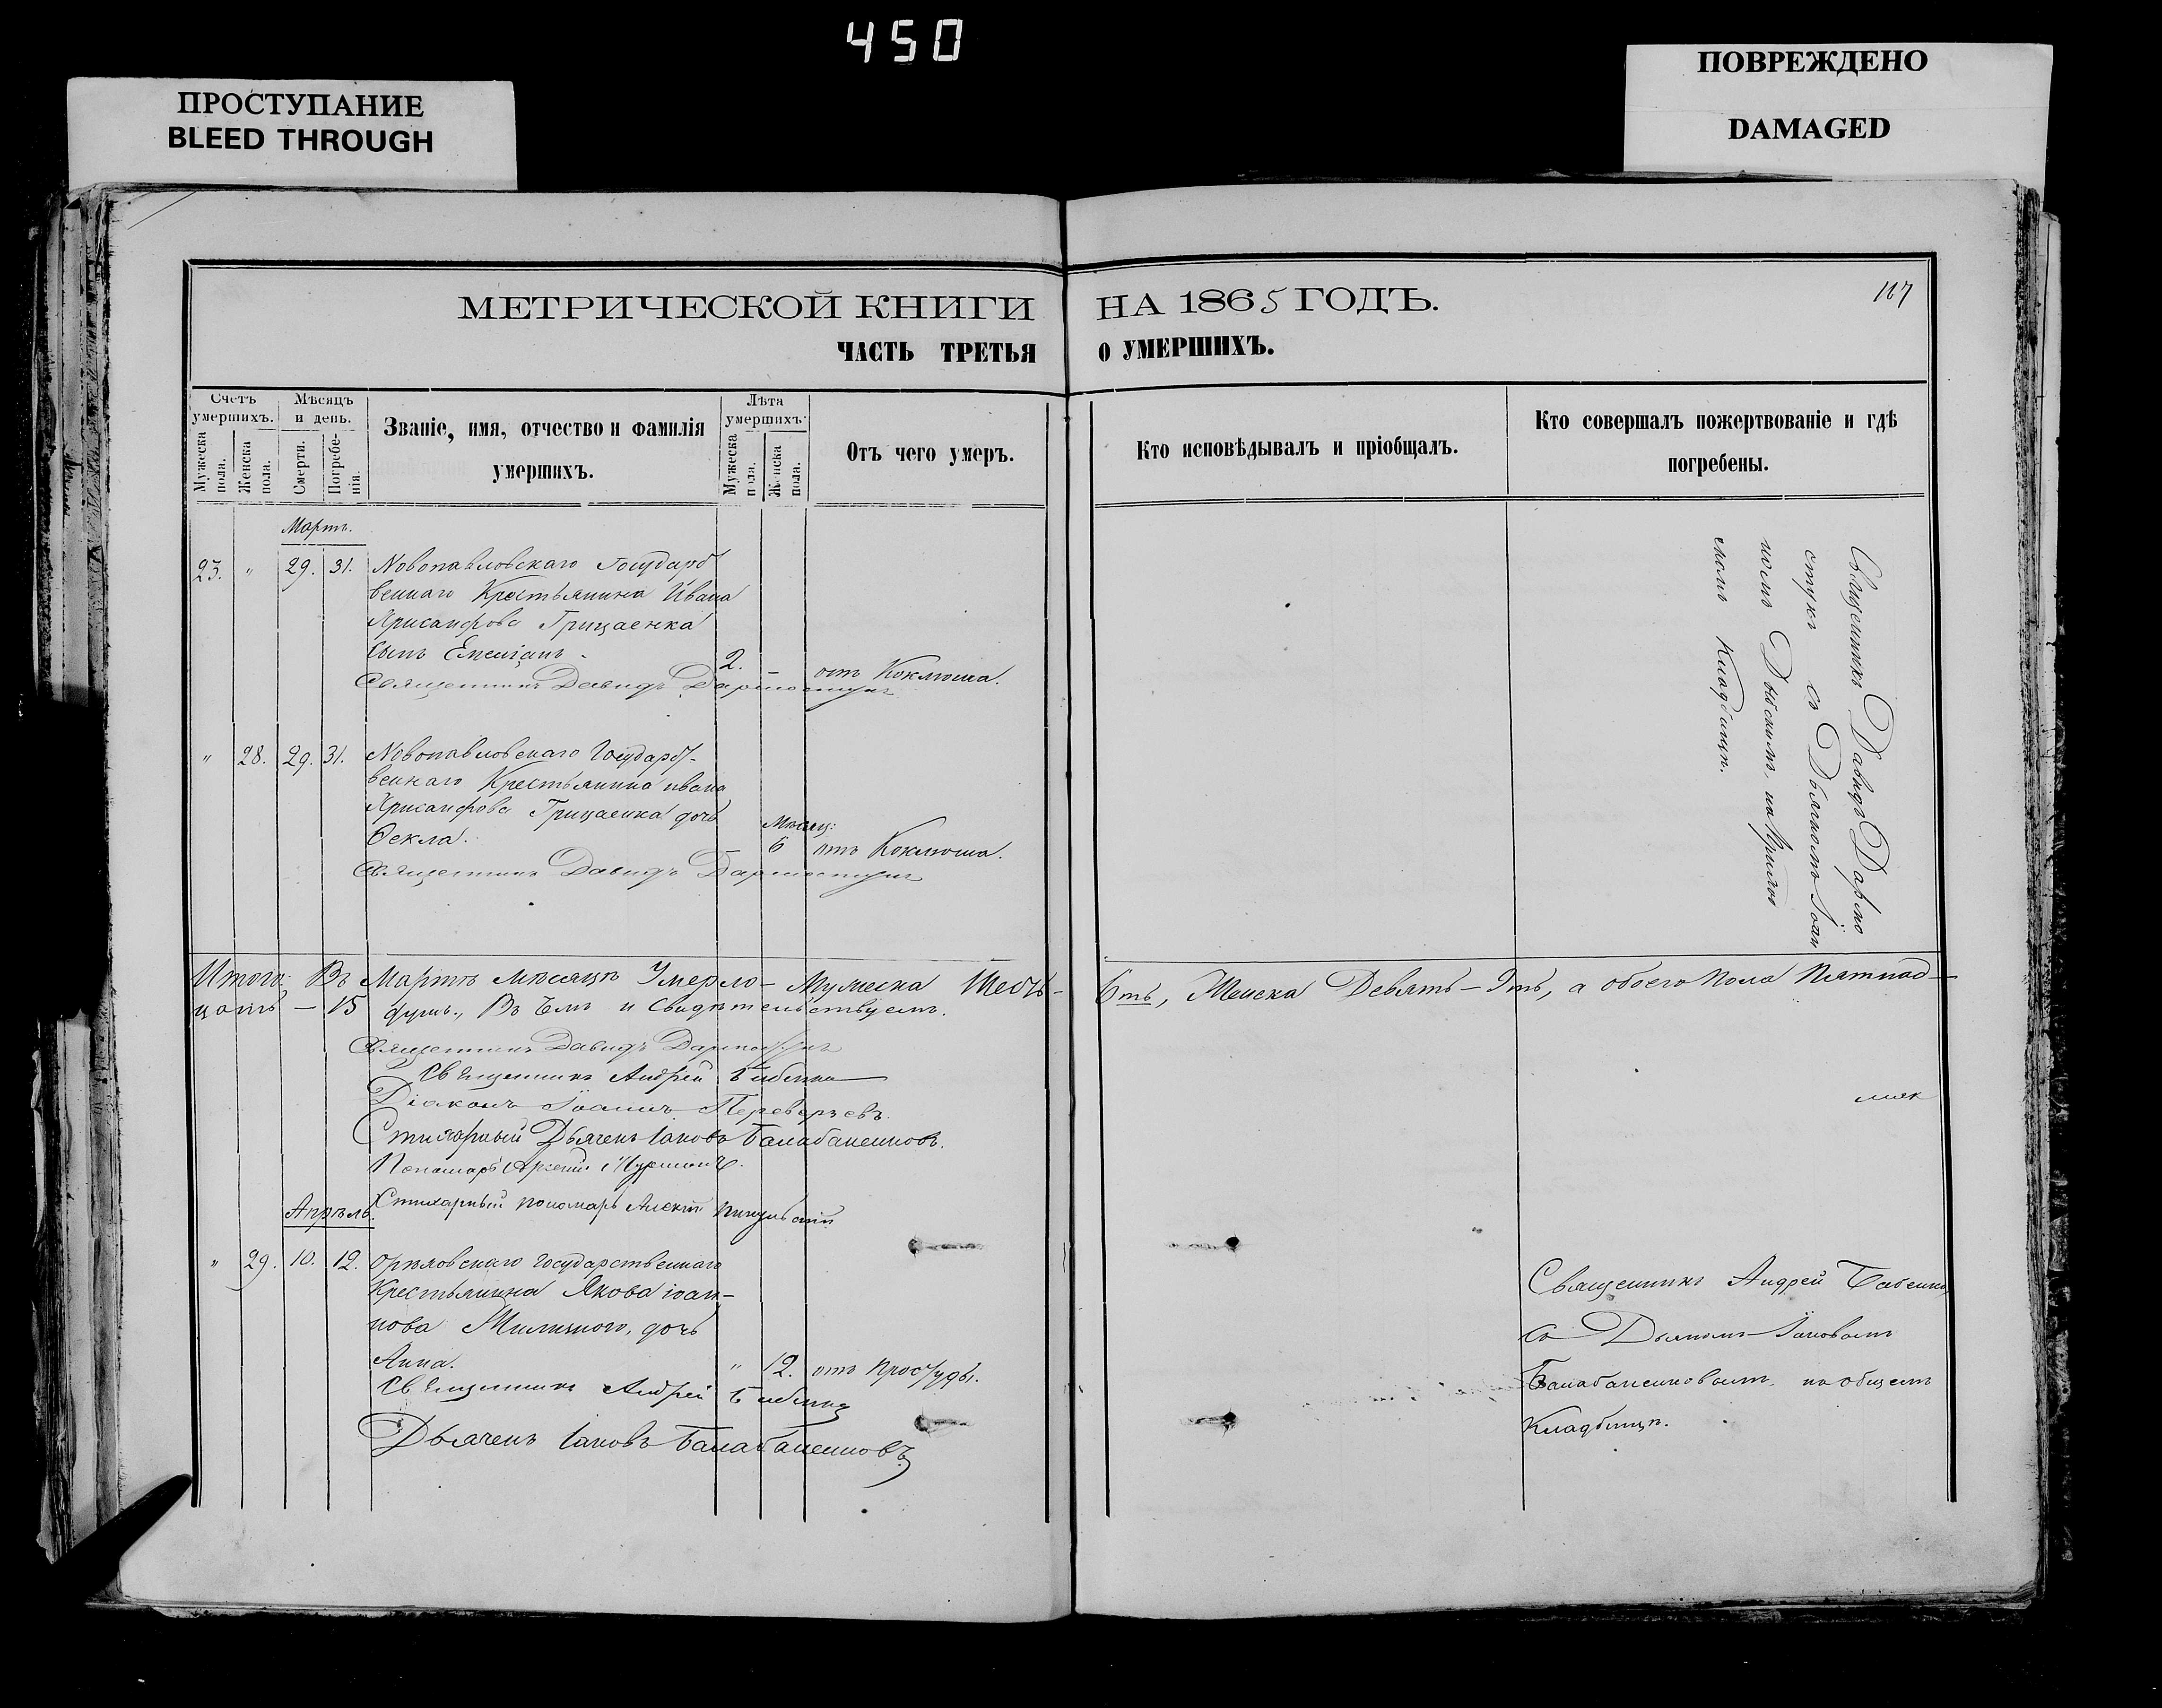 450
ПРОСТУПАНИЕ
BLEED THROUGH
ПОВРЕЖДЕНО
DAMAGED
МЕТРИЧЕСКОЙ КНИГИ НА 1865 ГОДЪ.
117
ЧАСТЬ ТРЕТЬЯ О УМЕРШИХЪ.
Счетъ умершихъ.
Мужеска пола.
Женска пола.
Мѣсяцъ и день.
Смерти.
Погребенія.
Званіе, имя, отчество и фамилія
умершихъ.
Лѣта умершихъ:
Мужеска пола.
Женска пола.
Отъ чего умеръ.
Кто исповѣдывалъ и пріобщалъ.
Кто совершалъ пожертвованіе и гдѣ
погребены.
Мартъ.
23. " 29. 31. Новопавловскаго Государст
веннаго Крестьянина Ивана
Хрисанфова Грицаенка
сынъ Емеліанъ. 2. – отъ Коклюша.
Священникъ Давидъ
Священникъ Давидъ
съ Дьячкомъ Іоан
на Крило
момъ Кладбищѣ.
" 28. 29. 31. Новопавловскаго Государст-
веннаго Крестьянина Ивана
Хрисанфова Грицаенка дочь
Ѳекла. Мѣсяц: 6 отъ Коклюша.
Священникъ Давидъ
Итого: Въ Мартѣ мѣсяцѣ Умерло – Мужеска Шесть – 6ть, Женска Девять – 9ть, а обоего пола Пятнад–
цать – 15 душъ., Въ чемъ и Свидѣтельствуемъ.
Священникъ Давидъ
Священникъ Андрей Бабенко
Діаконъ Іоаннъ Переверзевъ.
Стихарный Дьячекъ Іаковъ Балабаненковъ.
Пономарь
Стихарный пономарь Алексій
Апрѣль.
" 29. 10. 12. Орѣховскаго Государственнаго
Крестьянина Якова Іоан–
нова дочь
Анна. " 12. отъ Простуды.
Священникъ Андрей Бабенко
Дьячекъ Іаковъ Балабаненковъ
Священникъ Андрей Бабенко
съ Дьячкомъ Іаковомъ
Балабаненковымъ на общемъ
Кладбищѣ.